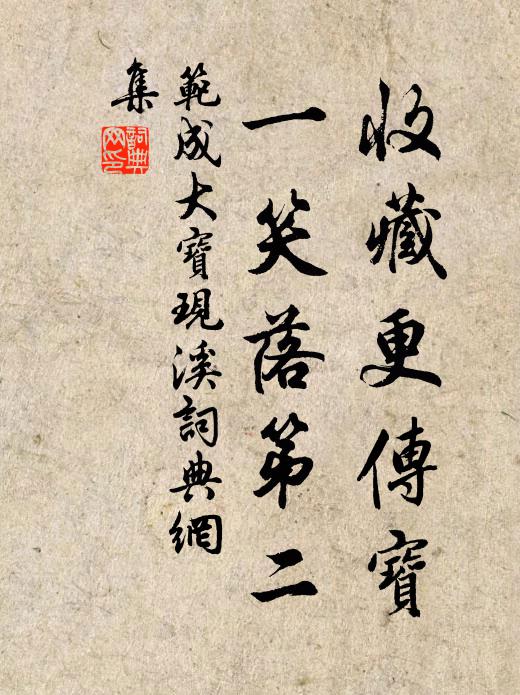 收藏更傳寶
一笑落第二
範成大寶現溪詞典網
集
詞典
網印